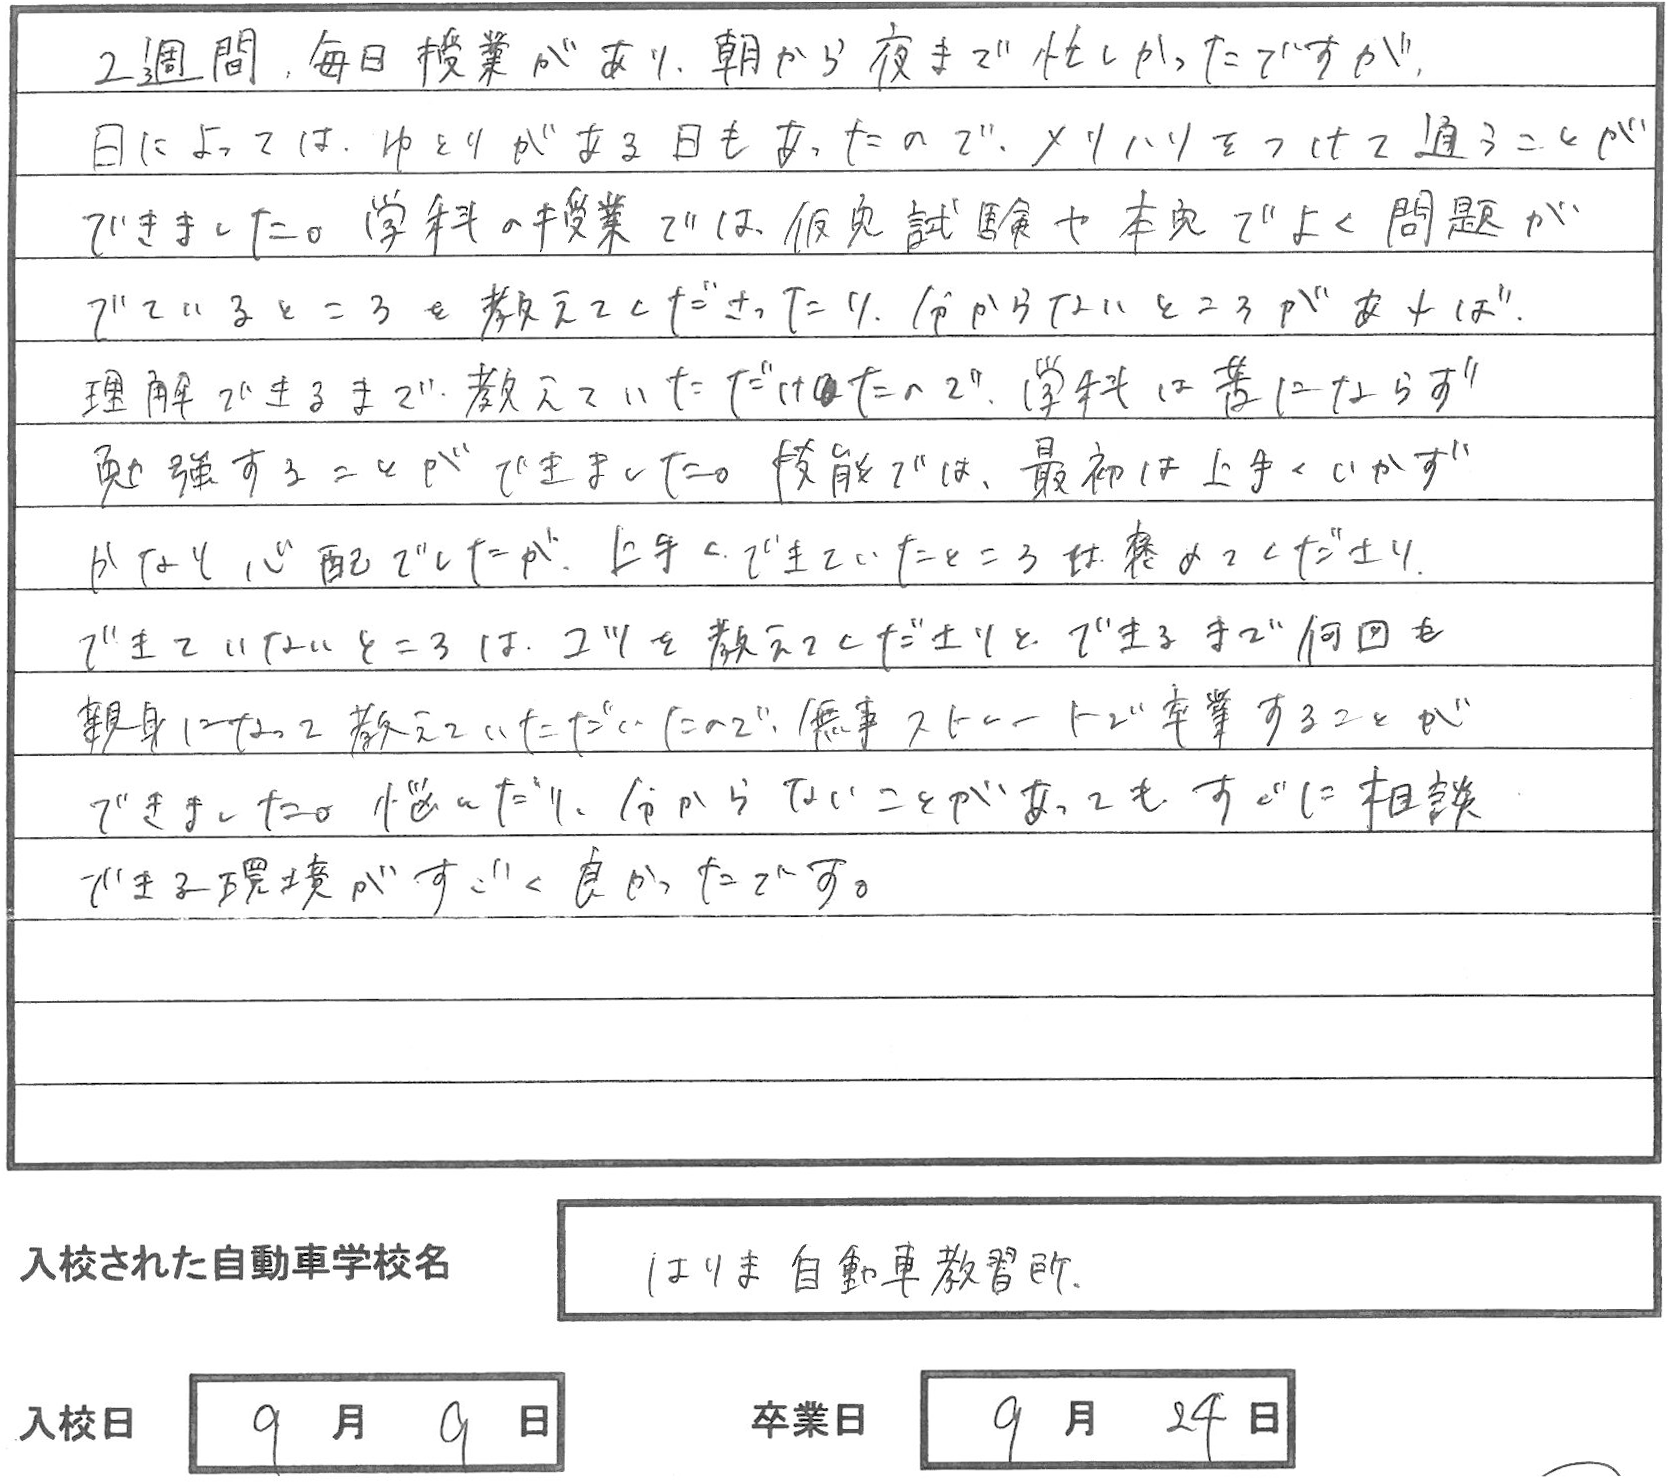 2週間、毎日授業があり、朝から夜まで忙しかったですが、
日によっては、ゆとりがある日もあったので、メリハリをつけて通うことが
できました。学科の授業では、仮免試験や本免でよく問題が
でているところを教えてくださったり、分からないところがあれば、
理解できるまで教えていただけたので、学科は苦にならず
勉強することができました。技能では、最初は上手くいかず
かなり心配でしたが、上手くできていたところは褒めてくださり、
できていないところは、コツを教えてくださりと、できるまで何回も
親身になって教えていただいたので、無事ストレートで卒業することが
できました。悩んだり、分からないことがあっても、すぐに相談
できる環境がすごく良かったです。
入校された自動車学校名 はりま自動車教習所.
入校日 9月9日 卒業日 9月24日